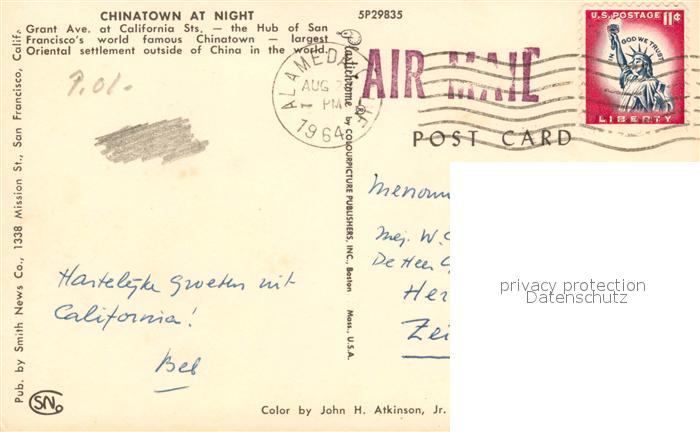 CHINATOWN AT NIGHT
Grant Ave. at California Sts. — the Hub of San
Francisco's world famous Chinatown — largest
Oriental settlement outside of China in the world.
5P29835
Pub. by Smith News Co., 1338 Mission St., San Francisco, Calif.
Plastichrome ® by COLOURPICTURE PUBLISHERS, INC., Boston Mass., U.S.A.
ALAMEDA
AUG
PM
1964
AIR MAIL
U.S. POSTAGE 11¢
IN GOD WE TRUST
LIBERTY
POST CARD
Mej. W.
De Heer
Her
Zei
privacy protection
Datenschutz
Hartelijke groeten uit
California!
Bel
SN
Color by John H. Atkinson, Jr.